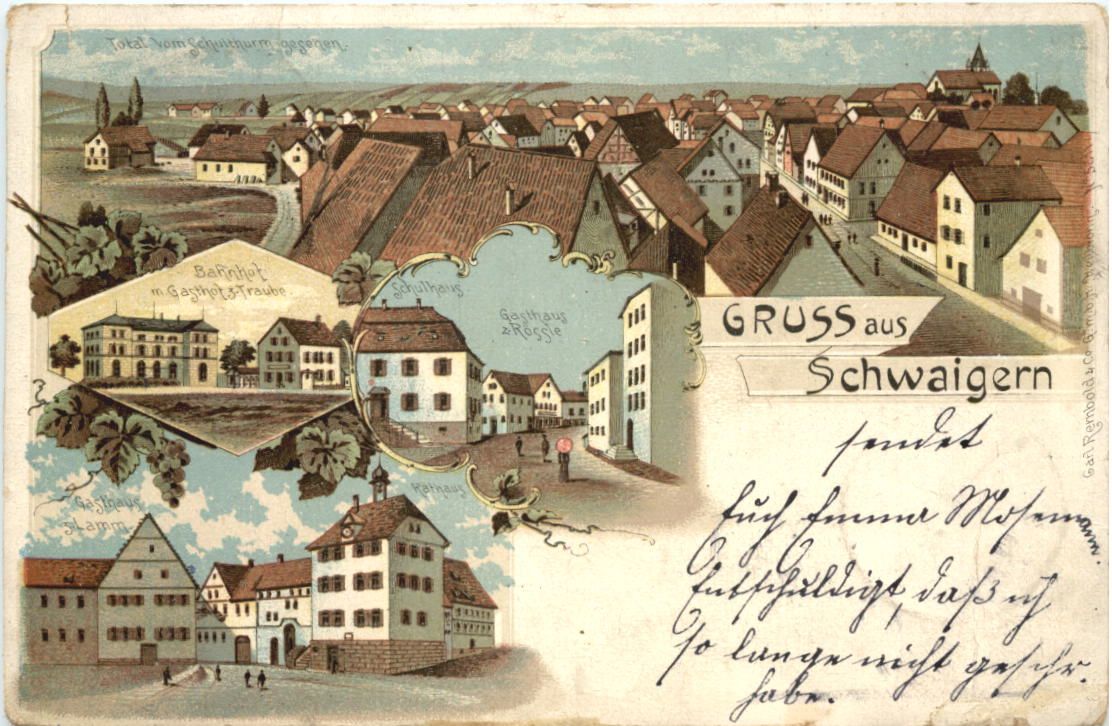 Total vom Schulthurm gesehen.
Bahnhof
m. Gasthof z. Traube.
Schulhaus
Gasthaus
z. Rössle
GRUSS aus
Schwaigern
Gasthaus
z. Lamm.
Rathaus
sendet
Euch Emma Mosemann.
Entschuldigt, daß ich
so lange nicht geschr.
habe.
Carl Rembold & Co